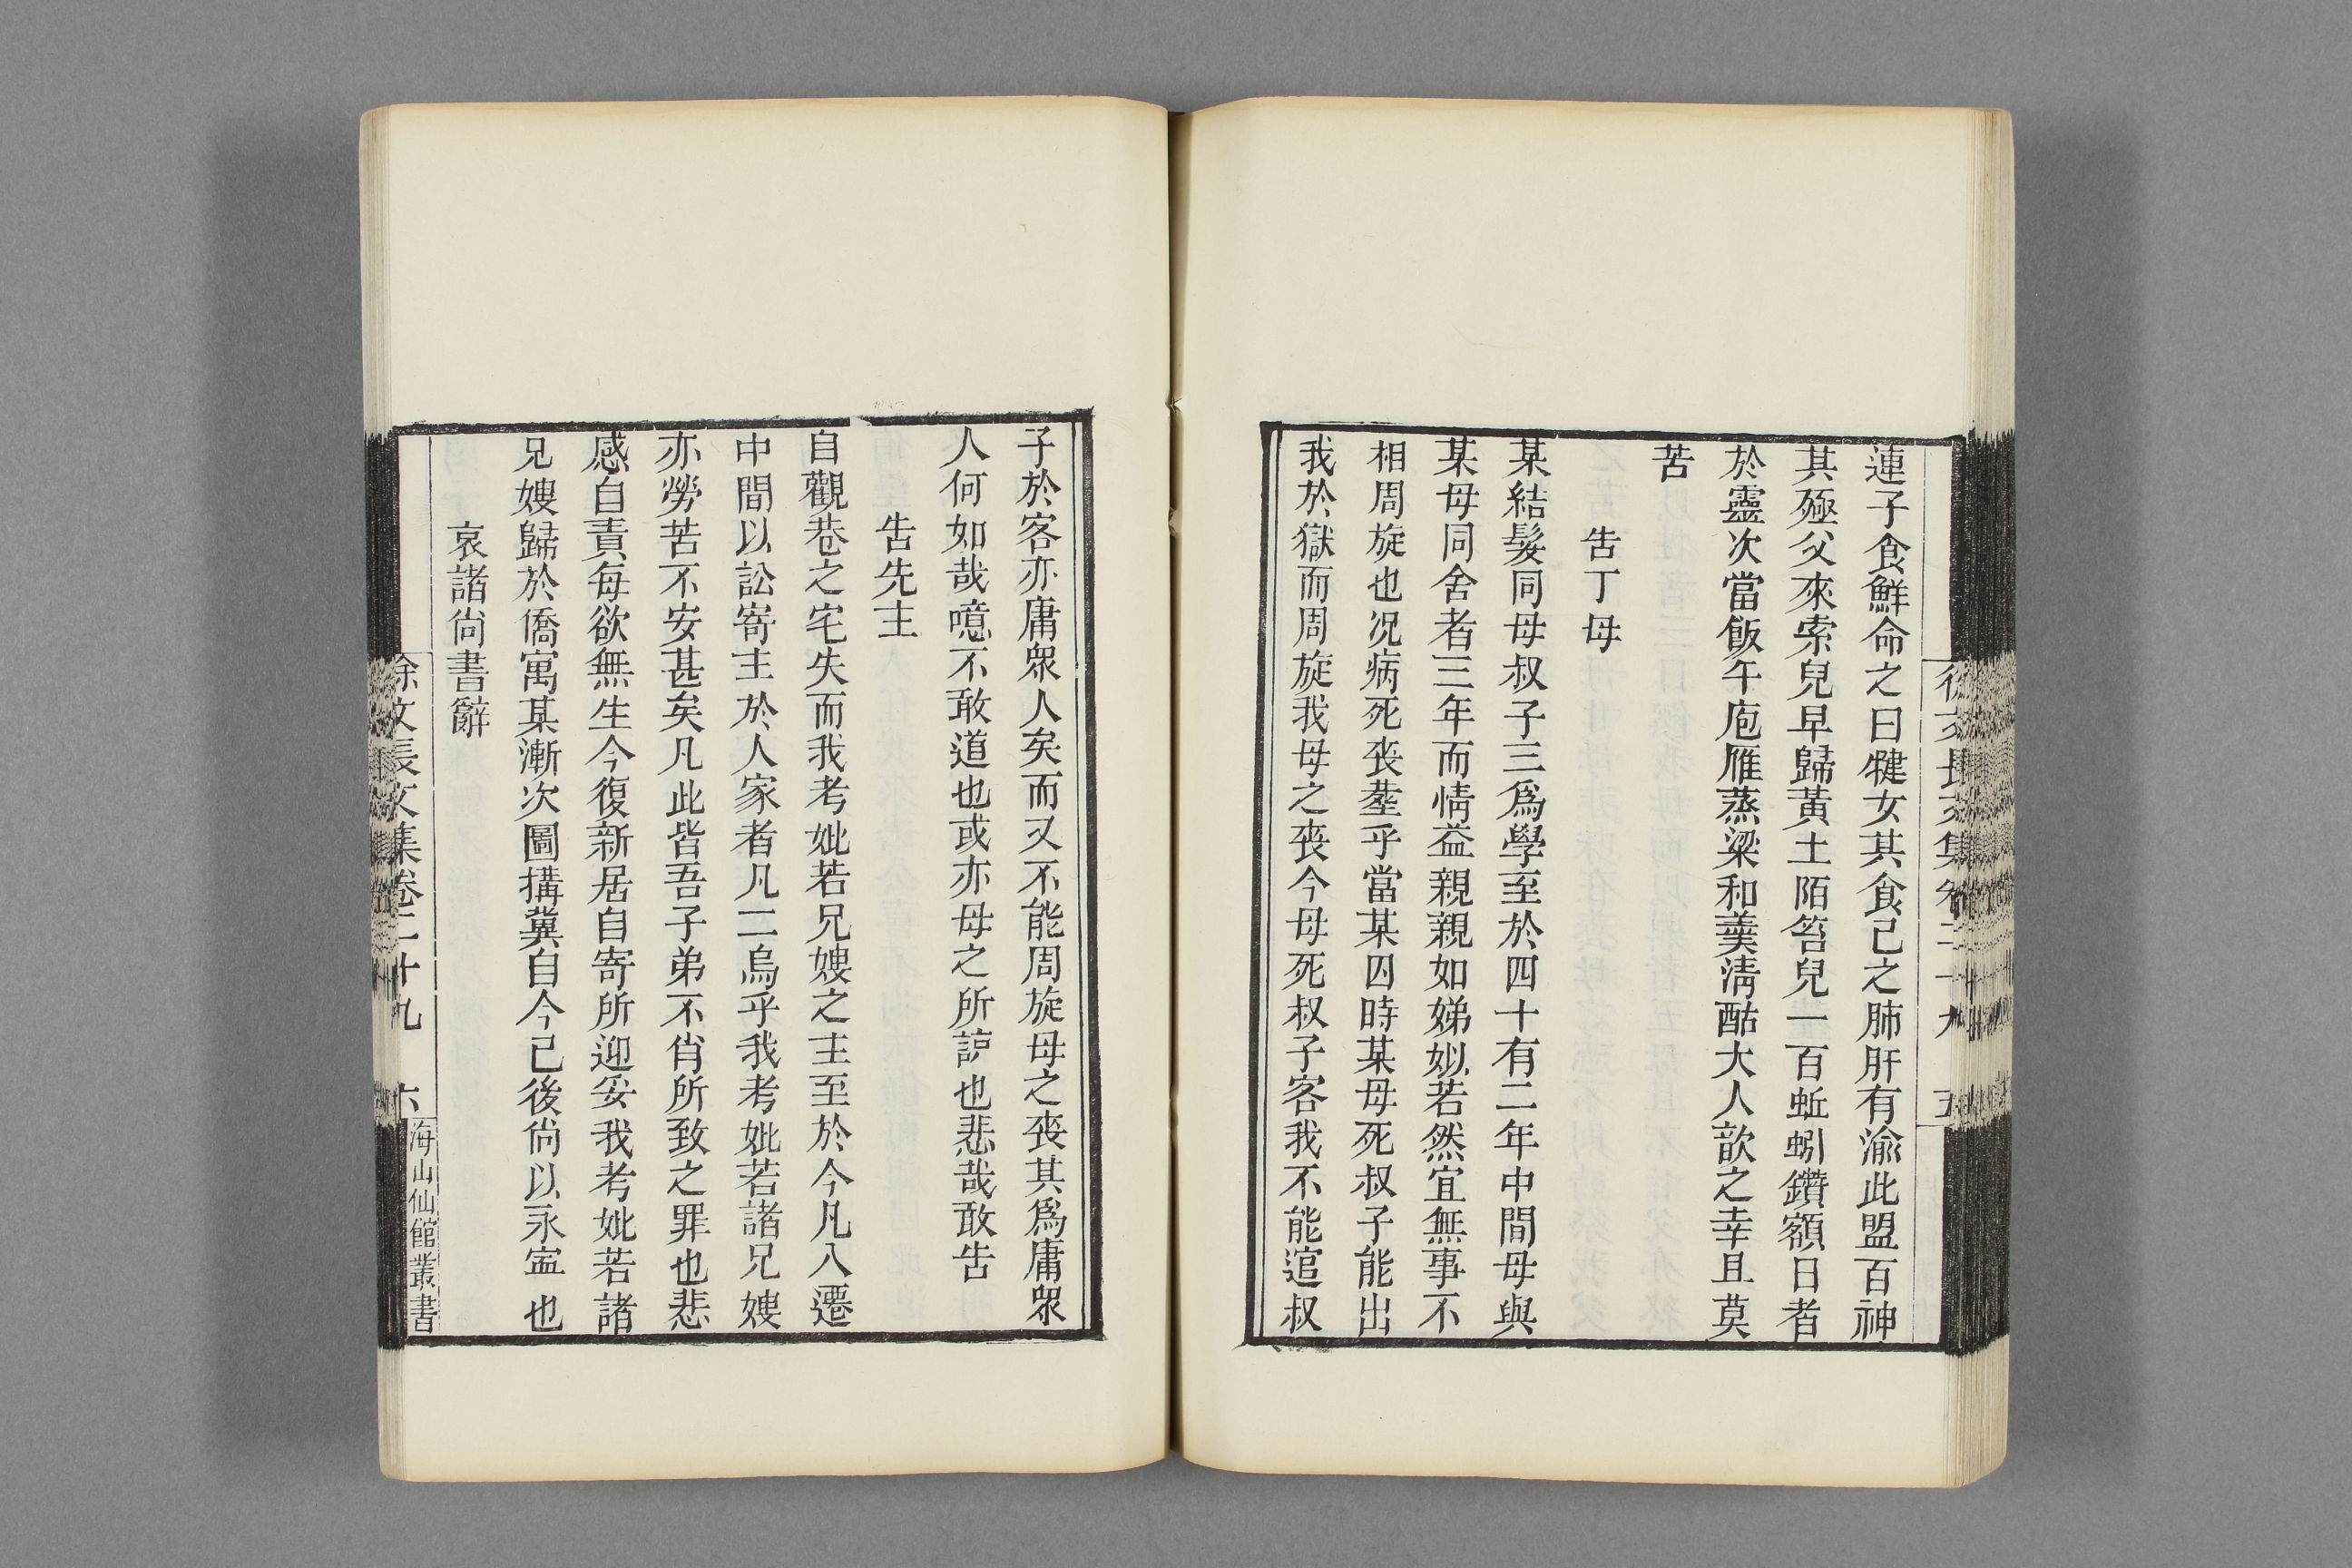 蓮子食鮮命之曰犍女其食己之肺肝有渝此盟百神
其殛父來索兒早歸黃土陌笞兒一百蚯蚓鑽額日者
於靈次當飯午庖雁蒸粱和羹淸酤大人歆之幸且莫
苦
告丁母
某結髮同母叔子三爲學至於四十有二年中間母與
某母同舍者三年而情益親親如娣姒若然宜無事不
相周旋也况病死喪塟乎當某囚時某母死叔子能出
我於獄而周旋我母之喪今母死叔子客我不能逭叔
子於客亦庸衆人矣而又不能周旋母之喪其爲庸衆
人何如哉噫不敢道也或亦母之所諒也悲哉敢告
告先主
自觀巷之宅失而我考妣若兄嫂之主至於今凡八遷
中間以訟寄主於人家者凡二烏乎我考妣若諸兄嫂
亦勞苦不安甚矣凡此皆吾子弟不肖所致之罪也悲
感自責每欲無生今復新居自寄所迎妥我考妣若諸
兄嫂歸於僑寓某漸次圖搆冀自今已後尙以永寍也
哀諸尙書辭
徐文長文集卷二十九 六
海山仙館叢書